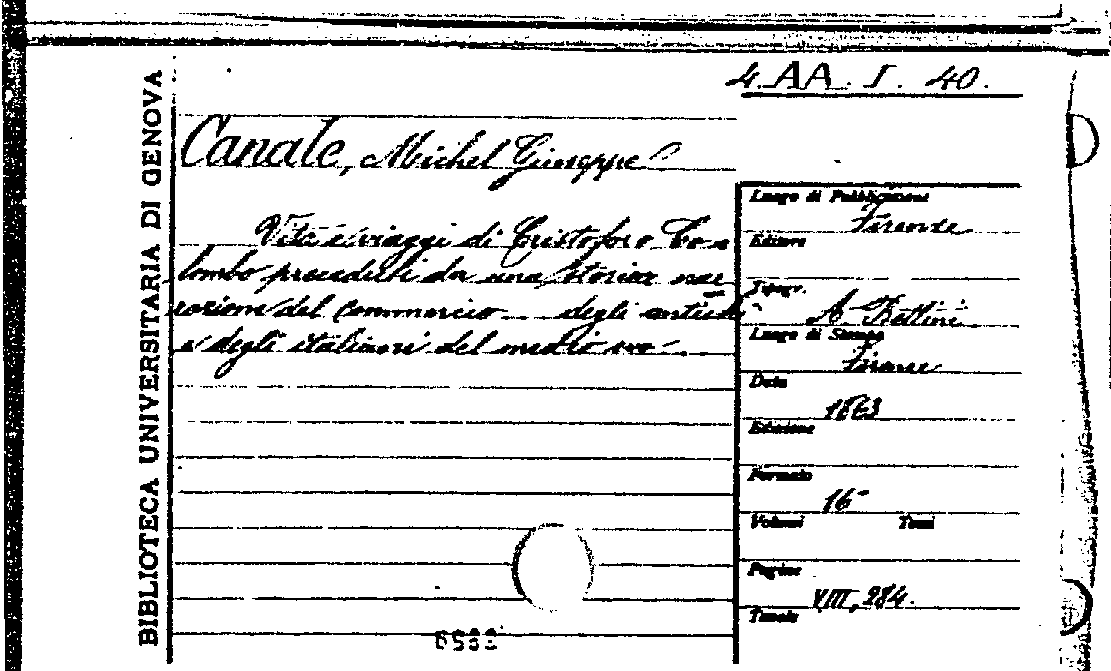 4. AA. I. 40.
BIBLIOTECA UNIVERSITARIA DI GENOVA
Canale, Michel Giuseppe
Vita e viaggi di Cristoforo Co=
lombo preceduti da una storia nar
razione del commercio degli antichi
e degli italiani del medio evo.
Luogo di Pubblicazione
Firenze
Editore
Tipogr.
A. Bettini
Luogo di Stampa
Firenze
Data
1863
Edizione
Formato
16°
Volumi Tomi
Pagine
VIII, 284.
Tavole